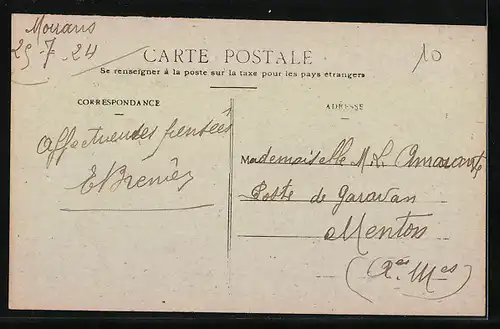 Moirans
25-7-24
10
CARTE POSTALE
Se renseigner à la poste sur la taxe pour les pays étrangers
CORRESPONDANCE
ADRESSE
Affectueuses pensées
Mademoiselle M.L. Amarante
Poste de Garavan
Menton
(Aes Mes)